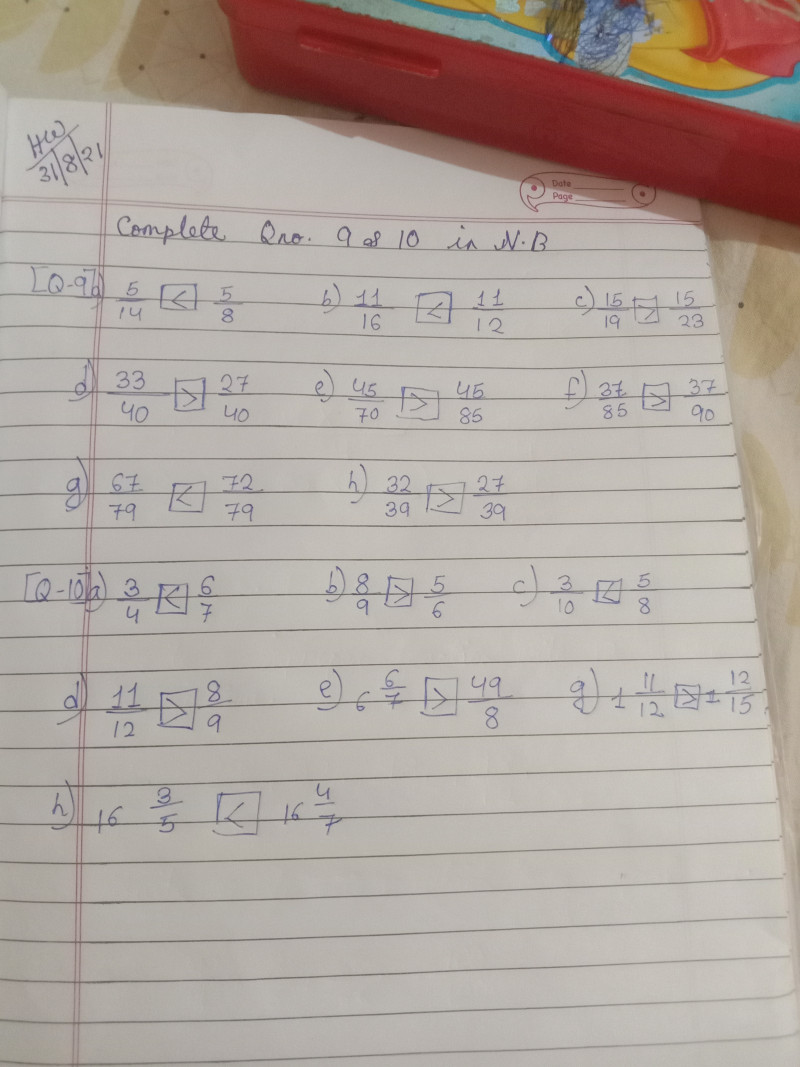 HW
31/8/21
Date
Page
Complete Q no. 9 & 10 in N.B
[Q-9] a) 5/14 < 5/8 b) 11/16 < 11/12 c) 15/19 > 15/23
d) 33/40 > 27/40 e) 45/70 > 45/85 f) 37/85 > 37/90
g) 67/79 < 72/79 h) 32/39 > 27/39
[Q-10] a) 3/4 < 6/7 b) 8/9 > 5/6 c) 3/10 < 5/8
d) 11/12 > 8/9 e) 6 6/7 > 49/8 g) 1 11/12 > 1 12/15
h) 16 3/5 < 16 4/7